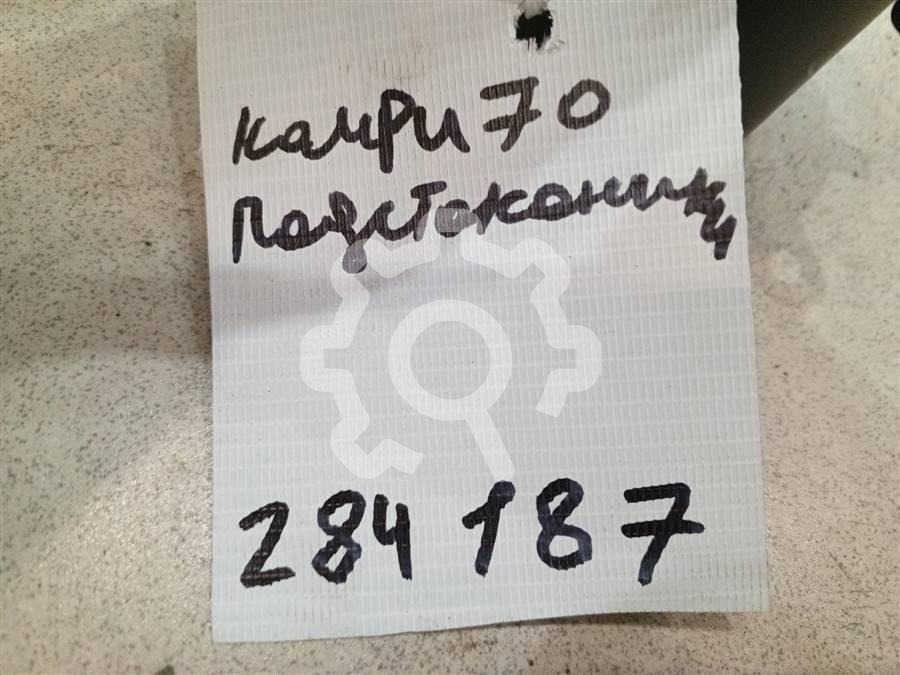 Камри 70
Подстаканники
284 187